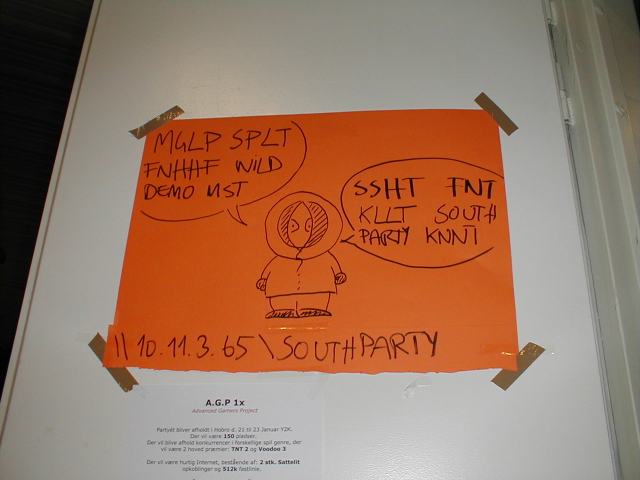 MGLP SPLT
FNHHF WILD
DEMO MST
SSHT FNT
KLLT SOUTH
PARTY KNNT
\\ 10.11.3.65 \ SOUTHPARTY
A.G.P 1x
Advanced Gamers Project
Partyét bliver afholdt i Hobro d. 21 til 23 Januar Y2K.
Der vil være 150 pladser.
Der vil blive afhold konkurrencer i forskellige spil genre, der
vil være 2 hoved præmier: TNT 2 og Voodoo 3
Der vil være hurtig Internet, bestående af: 2 stk. Sattelit
opkoblinger og 512k fastlinie.